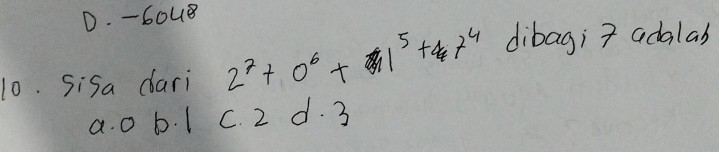 D. -6048
10. Sisa dari 2⁷ + 0⁶ + 1⁵ + 7⁴ dibagi 7 adalah
a. 0 b. 1 c. 2 d. 3